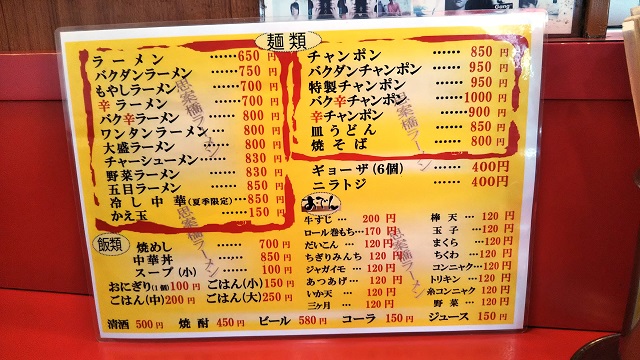 麺類
ラーメン……650円
バクダンラーメン……750円
もやしラーメン……700円
辛ラーメン……700円
バク辛ラーメン……800円
ワンタンラーメン…800円
大盛ラーメン……800円
チャーシューメン……830円
野菜ラーメン……830円
五目ラーメン……850円
冷し中華(夏季限定)…850円
かえ玉……150円
チャンポン……850円
バクダンチャンポン……950円
特製チャンポン……950円
バク辛チャンポン……1000円
辛チャンポン……900円
皿うどん……850円
焼そば……800円
ギョーザ(6個)……400円
ニラトジ……400円
おでん
牛すじ…200円
ロール巻もち…170円
だいこん…120円
ちぎりみんち 120円
ジャガイモ…120円
あつあげ…120円
いか天…120円
三ヶ月…120円
棒天…120円
玉子…120円
まくら…120円
ちくわ…120円
コンニャク…120円
トリキン…120円
糸コンニャク 120円
野菜…120円
飯類
焼めし……700円
中華丼……850円
スープ(小)……100円
おにぎり(1個)100円 ごはん(小)150円
ごはん(中)200円 ごはん(大)250円
清酒 500円 焼酎 450円 ビール 580円 コーラ 150円 ジュース 150円
思案橋ラーメン
思案橋ラーメン
思案橋ラーメン